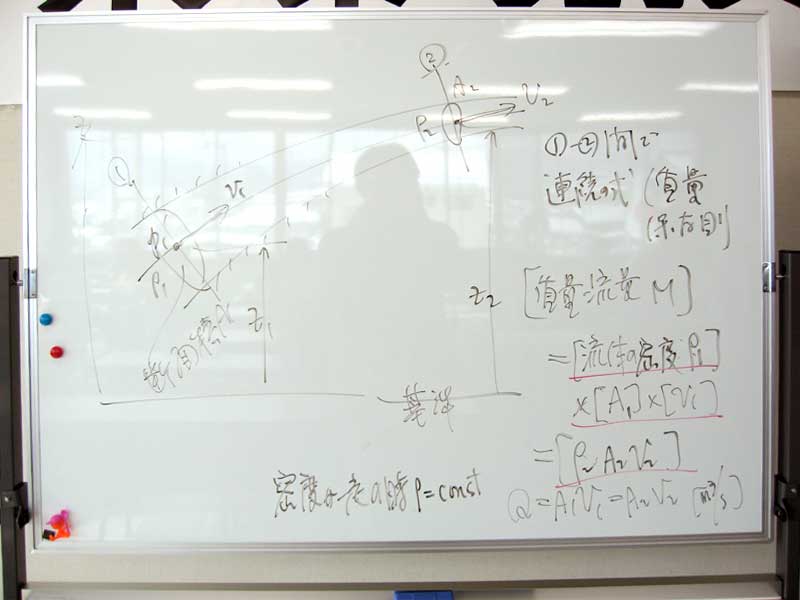 ②
A₂
v₂
ρ₂
z
①
v₁
p₁
ρ₁
断面積A
z₁
z₂
基準
①-②間で
連続の式 (質量
保存則)
[質量流量 M]
=[流体の密度 ρ₁]
×[A₁]×[v₁]
=[ρ₂ A₂ v₂]
密度が一定の時 ρ=const
Q=A₁v₁=A₂v₂ [m³/s]